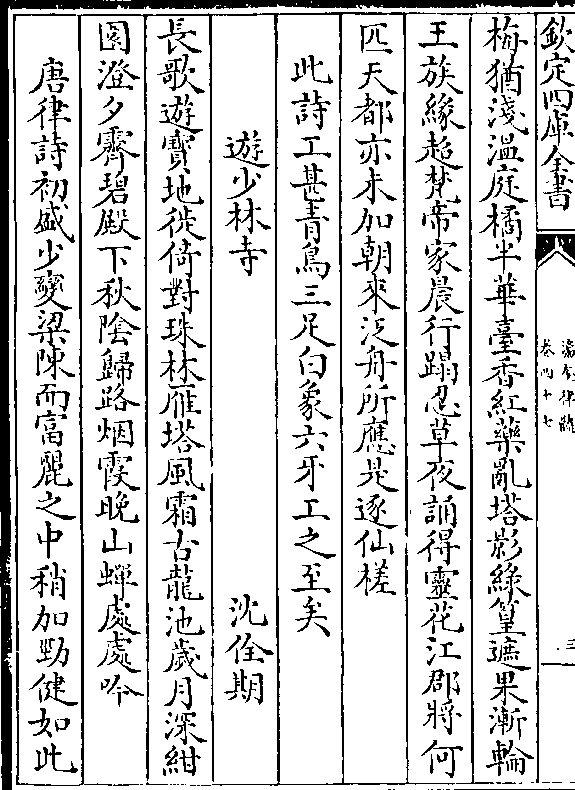 欽定四庫全書
瀛奎律髓
卷四十七
三
梅猶淺溫庭橘半華臺香紅藥亂塔影綠篁遮果漸輪
王族緣超梵帝家晨行蹋忍草夜誦得靈花江郡將何
匹天都亦未加朝來泛舟所應是逐仙槎
此詩工甚青鳥三足白象六牙工之至矣
遊少林寺　沈佺期
長歌遊寶地徙倚對珠林雁塔風霜古龍池歲月深紺
園澄夕霽碧殿下秋陰歸路烟霞晚山蟬處處吟
唐律詩初盛少變梁陳而富麗之中稍加勁健如此